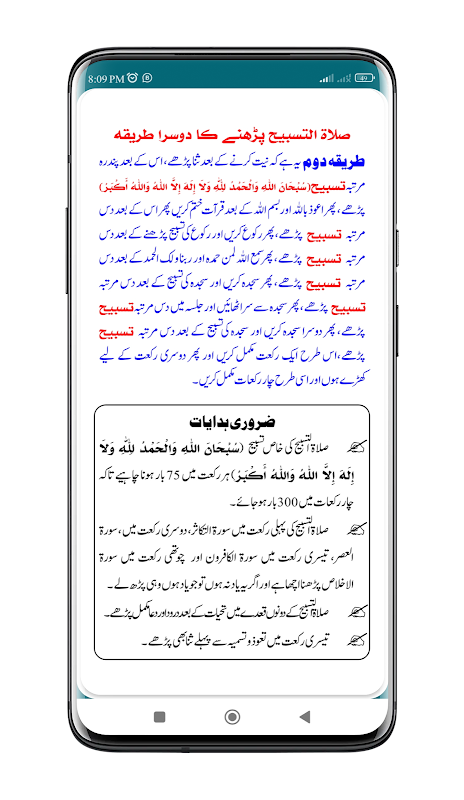 8:09 PM
صلاۃ التسبیح پڑھنے کا دوسرا طریقہ
طریقہ دوم یہ ہے کہ نیت کرنے کے بعد ثنا پڑھے، اس کے بعد پندرہ
مرتبہ تسبیح (سُبْحَانَ اللهِ وَالْحَمْدُ لِلّٰهِ وَلَا إِلٰهَ إِلَّا اللهُ وَاللهُ أَكْبَرُ)
پڑھے، پھر اعوذ باللہ اور بسم اللہ کے بعد قرآت ختم کریں پھر اس کے بعد دس
مرتبہ تسبیح پڑھے، پھر رکوع کریں اور رکوع کی تسبیح پڑھنے کے بعد دس
مرتبہ تسبیح پڑھے، پھر سمع اللہ لمن حمدہ اور ربنا ولک الحمد کے بعد دس
مرتبہ تسبیح پڑھے، پھر سجدہ کریں اور سجدہ کی تسبیح کے بعد دس مرتبہ
تسبیح پڑھے، پھر سجدہ سے سر اٹھائیں اور جلسہ میں دس مرتبہ تسبیح
پڑھے، پھر دوسرا سجدہ کریں اور سجدہ کی تسبیح کے بعد دس مرتبہ تسبیح
پڑھے، اس طرح ایک رکعت مکمل کریں اور پھر دوسری رکعت کے لیے
کھڑے ہوں اور اسی طرح چار رکعات مکمل کریں۔
ضروری ہدایات
صلاۃ التسبیح کی خاص تسبیح (سُبْحَانَ اللهِ وَالْحَمْدُ لِلّٰهِ وَلَا
إِلٰهَ إِلَّا اللهُ وَاللهُ أَكْبَرُ) ہر رکعت میں 75 بار ہونا چاہیے تاکہ
چار رکعات میں 300 بار ہو جائے۔
صلاۃ التسبیح کی پہلی رکعت میں سورۃ التکاثر، دوسری رکعت میں، سورۃ
العصر، تیسری رکعت میں سورۃ الکافرون اور چوتھی رکعت میں سورۃ
الاخلاص پڑھنا اچھا ہے اور اگر یہ یاد نہ ہوں تو جو یاد ہوں وہی پڑھ لے۔
صلاۃ التسبیح کے دونوں قعدے میں تحیات کے بعد درود اور دعا مکمل پڑھے۔
تیسری رکعت میں تعوذ و تسمیہ سے پہلے ثنا بھی پڑھے۔